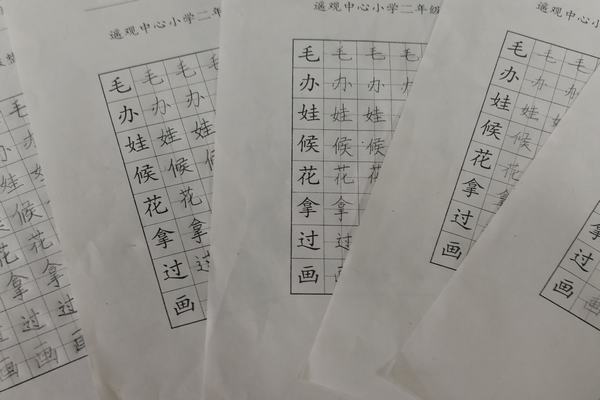 遥观中心小学二年
毛毛毛毛
办办办
娃娃娃
候候候
花花花
拿拿
过过
画
遥观中心小学二年级
毛毛毛毛
办办办办
娃娃娃娃
候候候
花花花
拿拿
过过
画
遥观中心小
毛毛毛
办办办
娃娃娃
候候
花花
拿拿
过
画
毛
办
娃
候候
花花
拿拿
过过
画画画
拿
过
画